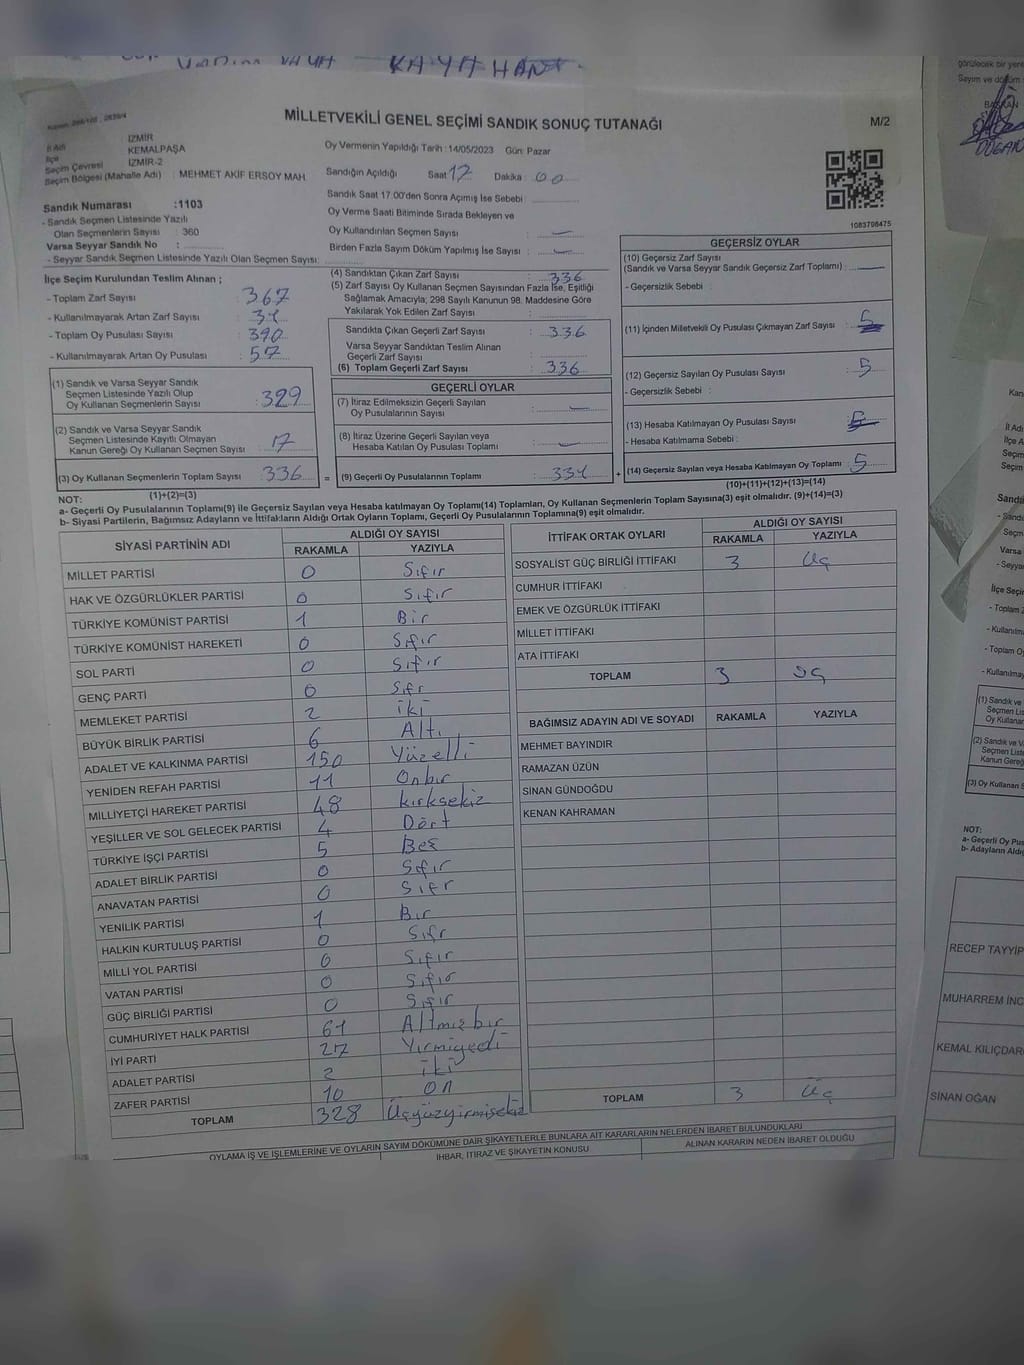 KAYAHAN
MİLLETVEKİLİ GENEL SEÇİMİ SANDIK SONUÇ TUTANAĞI
M/2
İl Adı İZMİR
İlçe KEMALPAŞA
Seçim Çevresi İZMİR-2
Seçim Bölgesi (Mahalle Adı) : MEHMET AKİF ERSOY MAH.
Oy Vermenin Yapıldığı Tarih :14/05/2023 Gün: Pazar
Sandığın Açıldığı Saat 17 Dakika : 00
Sandık Saat 17.00'den Sonra Açımış İse Sebebi :
Oy Verme Saati Bitiminde Sırada Bekleyen ve
Oy Kullandırılan Seçmen Sayısı :
Birden Fazla Sayım Döküm Yapılmış İse Sayısı :
1083798475
Sandık Numarası :1103
- Sandık Seçmen Listesinde Yazılı
Olan Seçmenlerin Sayısı : 360
Varsa Seyyar Sandık No :
- Seyyar Sandık Seçmen Listesinde Yazılı Olan Seçmen Sayısı:
İlçe Seçim Kurulundan Teslim Alınan ;
- Toplam Zarf Sayısı : 367
- Kullanılmayarak Artan Zarf Sayısı : 31
- Toplam Oy Pusulası Sayısı : 390
- Kullanılmayarak Artan Oy Pusulası : 57
(1) Sandık ve Varsa Seyyar Sandık
Seçmen Listesinde Yazılı Olup
Oy Kullanan Seçmenlerin Sayısı : 329
(2) Sandık ve Varsa Seyyar Sandık
Seçmen Listesinde Kayıtlı Olmayan
Kanun Gereği Oy Kullanan Seçmen Sayısı : 17
(3) Oy Kullanan Seçmenlerin Toplam Sayısı : 336
(1)+(2)=(3)
(4) Sandıktan Çıkan Zarf Sayısı : 336
(5) Zarf Sayısı Oy Kullanan Seçmen Sayısından Fazla İse, Eşitliği
Sağlamak Amacıyla; 298 Sayılı Kanunun 98. Maddesine Göre
Yakılarak Yok Edilen Zarf Sayısı :
Sandıkta Çıkan Geçerli Zarf Sayısı : 336
Varsa Seyyar Sandıktan Teslim Alınan
Geçerli Zarf Sayısı :
(6) Toplam Geçerli Zarf Sayısı : 336
GEÇERLİ OYLAR
(7) İtiraz Edilmeksizin Geçerli Sayılan
Oy Pusulalarının Sayısı :
(8) İtiraz Üzerine Geçerli Sayılan veya
Hesaba Katılan Oy Pusulası Toplamı :
= (9) Geçerli Oy Pusulalarının Toplamı : 331 +
GEÇERSİZ OYLAR
(10) Geçersiz Zarf Sayısı
(Sandık ve Varsa Seyyar Sandık Geçersiz Zarf Toplamı) :
- Geçersizlik Sebebi :
(11) İçinden Milletvekili Oy Pusulası Çıkmayan Zarf Sayısı :
(12) Geçersiz Sayılan Oy Pusulası Sayısı : 5
- Geçersizlik Sebebi :
(13) Hesaba Katılmayan Oy Pusulası Sayısı :
- Hesaba Katılmama Sebebi :
(14) Geçersiz Sayılan veya Hesaba Katılmayan Oy Toplamı : 5
(10)+(11)+(12)+(13)=(14)
NOT:
a- Geçerli Oy Pusulalarının Toplamı(9) ile Geçersiz Sayılan veya Hesaba katılmayan Oy Toplamı(14) Toplamları, Oy Kullanan Seçmenlerin Toplam Sayısına(3) eşit olmalıdır. (9)+(14)=(3)
b- Siyasi Partilerin, Bağımsız Adayların ve İttifakların Aldığı Ortak Oyların Toplamı, Geçerli Oy Pusulalarının Toplamına(9) eşit olmalıdır.
SİYASİ PARTİNİN ADI ALDIĞI OY SAYISI
RAKAMLA YAZIYLA
MİLLET PARTİSİ 0 Sıfır
HAK VE ÖZGÜRLÜKLER PARTİSİ 0 Sıfır
TÜRKİYE KOMÜNİST PARTİSİ 1 Bir
TÜRKİYE KOMÜNİST HAREKETİ 0 Sıfır
SOL PARTİ 0 Sıfır
GENÇ PARTİ 0 Sıfr
MEMLEKET PARTİSİ 2 iki
BÜYÜK BİRLİK PARTİSİ 6 Altı
ADALET VE KALKINMA PARTİSİ 150 Yüzelli
YENİDEN REFAH PARTİSİ 11 Onbir
MİLLİYETÇİ HAREKET PARTİSİ 48 kırksekiz
YEŞİLLER VE SOL GELECEK PARTİSİ 4 Dört
TÜRKİYE İŞÇİ PARTİSİ 5 Beş
ADALET BİRLİK PARTİSİ 0 Sıfır
ANAVATAN PARTİSİ 0 Sıfr
YENİLİK PARTİSİ 1 Bir
HALKIN KURTULUŞ PARTİSİ 0 Sıfr
MİLLİ YOL PARTİSİ 0 Sıfır
VATAN PARTİSİ 0 Sıfır
GÜÇ BİRLİĞİ PARTİSİ 0 Sıfır
CUMHURİYET HALK PARTİSİ 61 Altmışbir
İYİ PARTİ 27 Yirmiyedi
ADALET PARTİSİ 2 iki
ZAFER PARTİSİ 10 On
TOPLAM 328 Üçyüzyirmisekiz
İTTİFAK ORTAK OYLARI ALDIĞI OY SAYISI
RAKAMLA YAZIYLA
SOSYALİST GÜÇ BİRLİĞİ İTTİFAKI 3 Üç
CUMHUR İTTİFAKI
EMEK VE ÖZGÜRLÜK İTTİFAKI
MİLLET İTTİFAKI
ATA İTTİFAKI
TOPLAM 3 Üç
BAĞIMSIZ ADAYIN ADI VE SOYADI RAKAMLA YAZIYLA
MEHMET BAYINDIR
RAMAZAN ÜZÜN
SİNAN GÜNDOĞDU
KENAN KAHRAMAN
TOPLAM 3 Üç
OYLAMA İŞ VE İŞLEMLERİNE VE OYLARIN SAYIM DÖKÜMÜNE DAİR ŞİKAYETLERLE BUNLARA AİT KARARLARIN NELERDEN İBARET BULUNDUKLARI
İHBAR, İTİRAZ VE ŞİKAYETİN KONUSU ALINAN KARARIN NEDEN İBARET OLDUĞU
görülecek bir yere
DOĞAN
NOT:
RECEP TAYYİP
MUHARREM İNC
KEMAL KILIÇDAR
SİNAN OĞAN